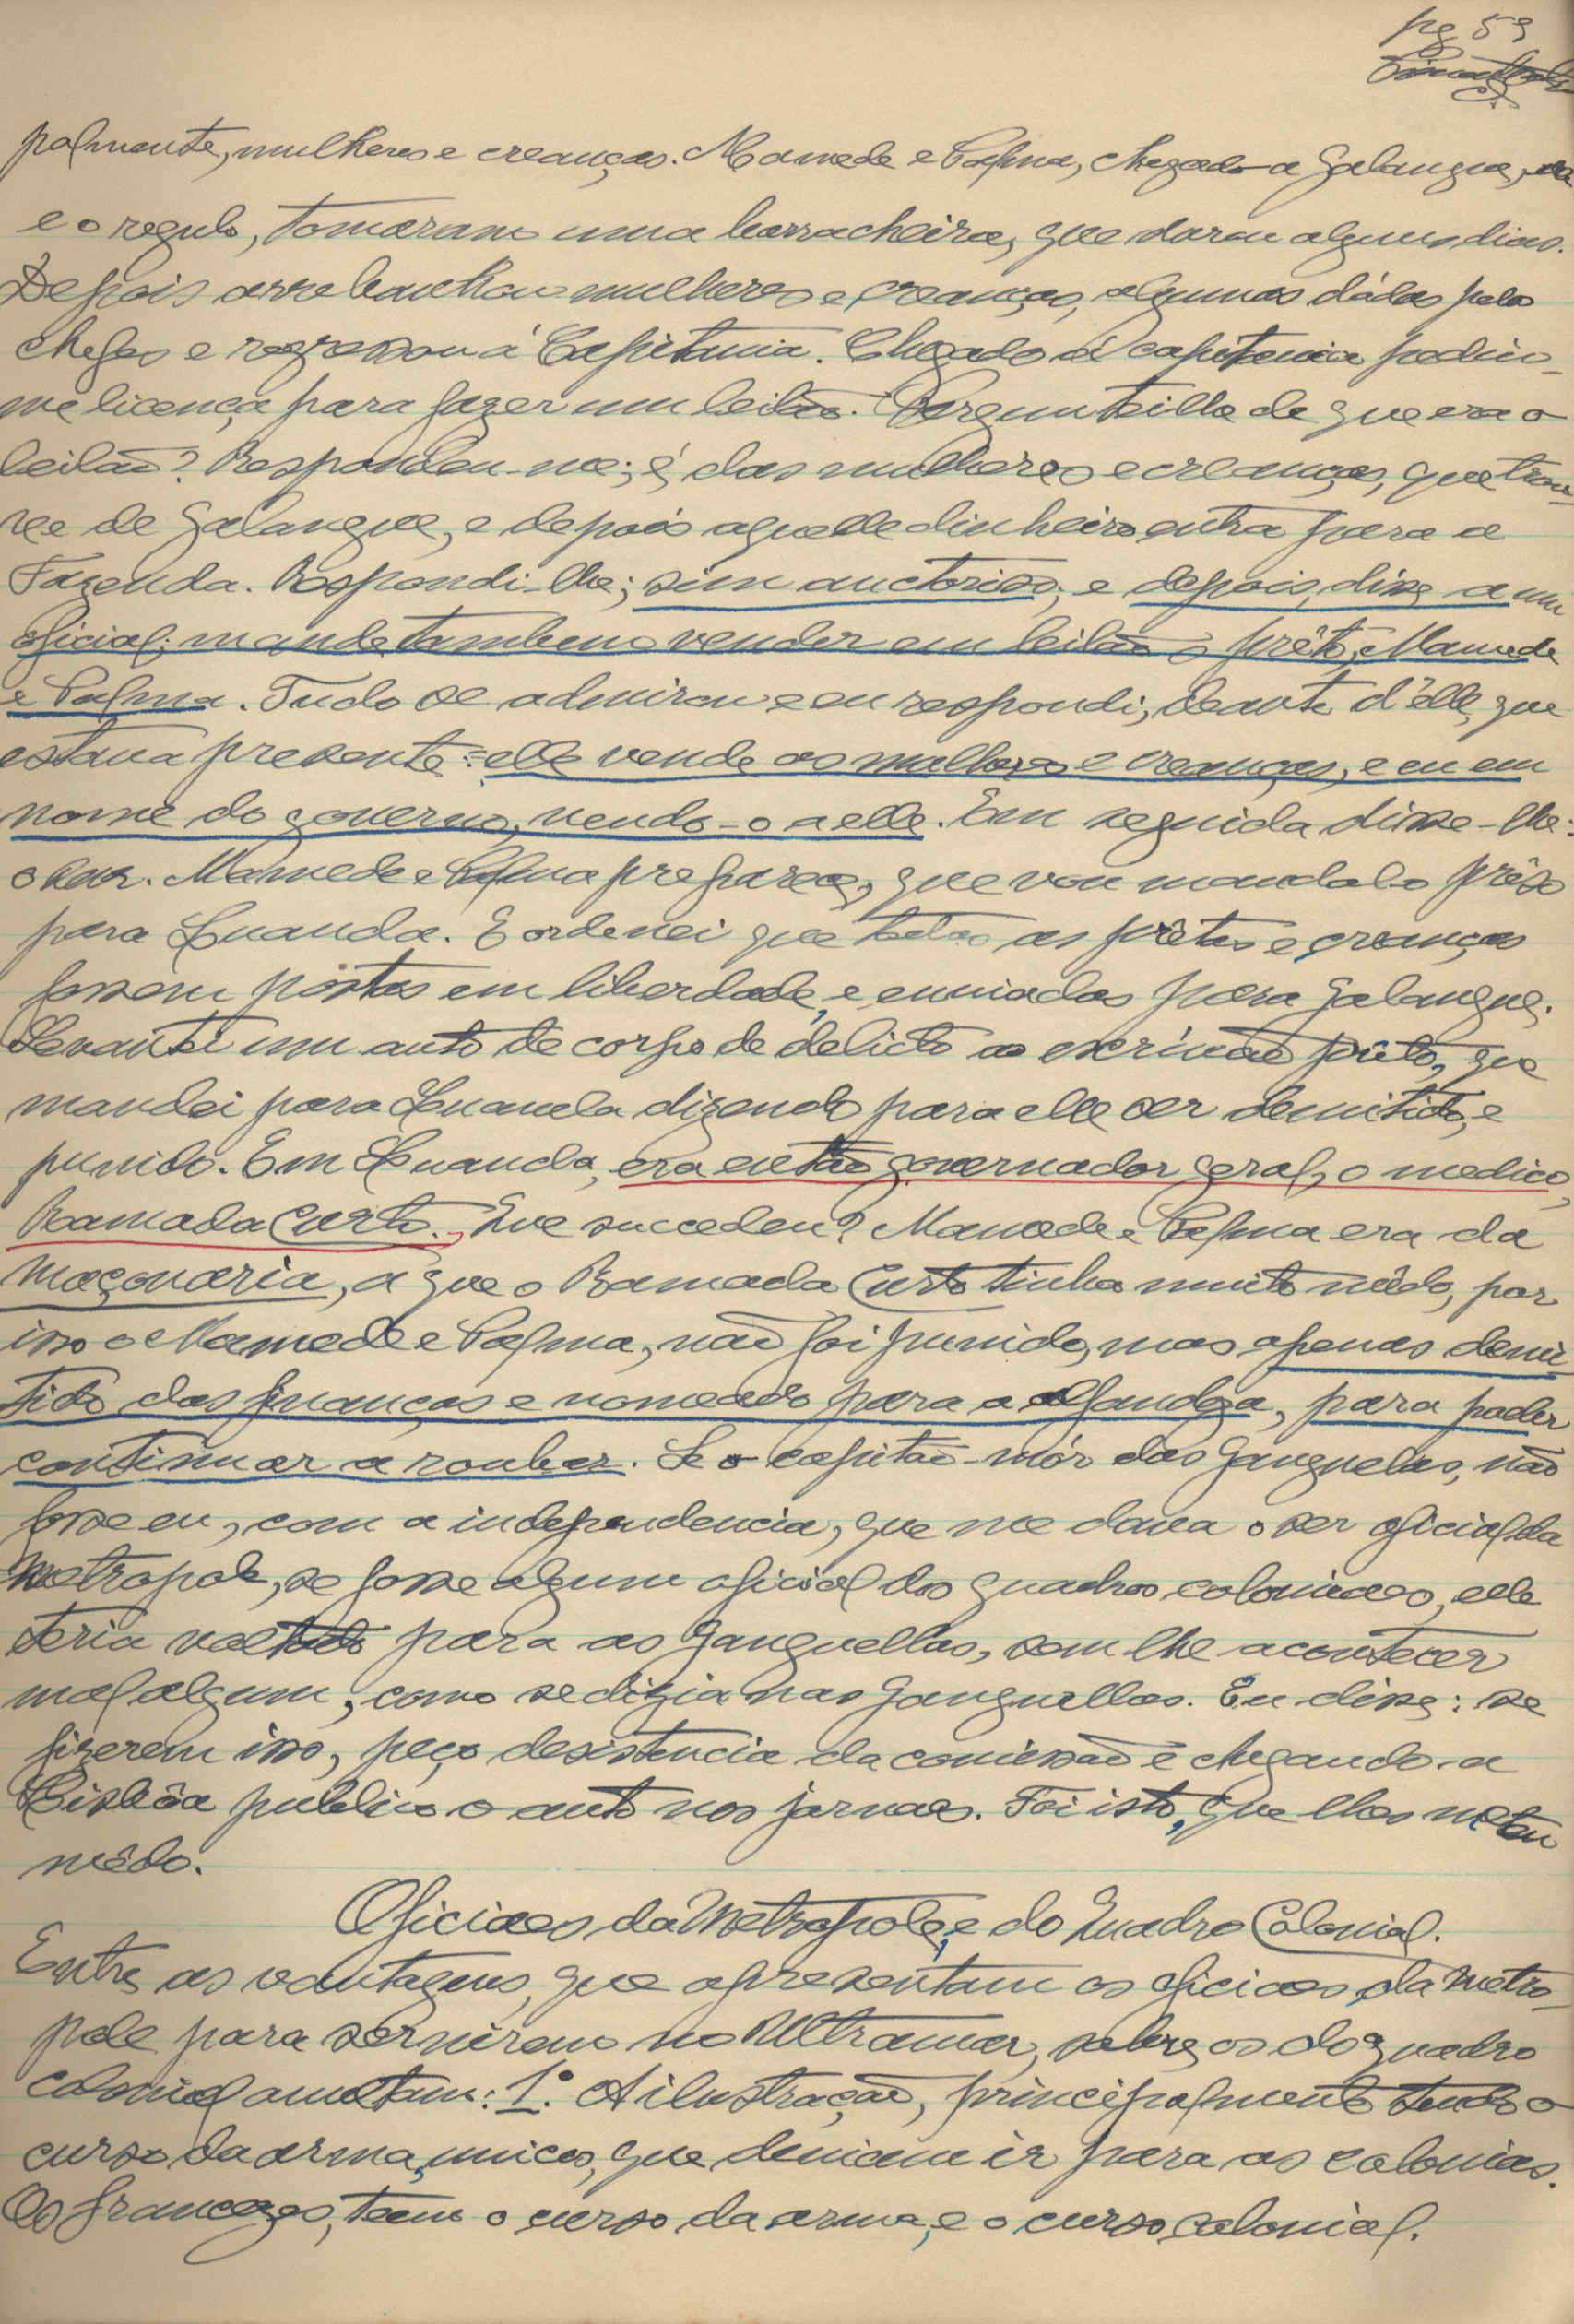 pg 59
palmente, mulheres e creanças. Mamede e Palma, chegado a Galangue, elle
e o regulo, tomaram uma borracheira, que durou alguns dias.
Depois arrebanhou mulheres e creanças, algumas dádas pelo
chefes e regressou á Capitania. Chegado á capitania pediu-
me licença para fazer um leilão. Perguntei-lhe de que era o
leilão? Respondeu-me; é das mulheres e creanças, que trou-
xe de Galangue, e depois aquelle dinheiro entra para a
Fazenda. Respondi-lhe; sim auctoriso; e depois, disse a um
oficial: mande tambem vender em leilão o prêto, Mamede
e Palma. Tudo se admirou e eu respondi, deante d'elle, que
estava presente: = elle vende as mulheres e creanças, e eu em
nome do governo, vendo-o a elle. Em seguida disse-lhe:
o snr. Mamede e Palma prepare-se, que vou mandalo prêso
para Luanda. E ordenei que todas as prêtas e creanças
fossem póstas em liberdade, e enviadas para Galangue.
Levantei um auto de corpo de delicto ao escrivão prêto, que
mandei para Luanda dizendo para elle ser demitido, e
punido. Em Luanda, era então governador geral, o medico,
Ramada Curto. Que succedeu? Mamede e Palma era da
maçonaria, a que o Ramada Curto tinha muito mêdo, por
isso o Mamede e Palma, não foi punido, mas apenas demi-
tido das finanças e nomeado para a alfandega, para poder
continuar a roubar. Se o capitão-mór das Ganguelas, não
fosse eu, com a independencia, que me dava o ser oficial da
metropole, se fosse algum oficial dos quadros coloniaes, elle
teria voltado para as Ganguellas, sem lhe acontecer
mal algum, como se dizia nas Ganguellas. Eu disse: se
fizerem isso, peço desistencia da comissão e chegando a
Lisbôa publico o auto nos jornaes. Foi isto, que lhes meteu
mêdo.
Oficiaes da Metropole, e do Quadro Colonial.
Entre as vantagens, que apresentam os oficiaes da Metro-
pole para servirem no Ultramar, sobre os do quadro
colonial avultam: 1.º A ilustração, principalmente tendo o
curso da arma, unicos, que deviam ir para as colonias.
Os francezes, teem o curso da arma, e o curso colonial.